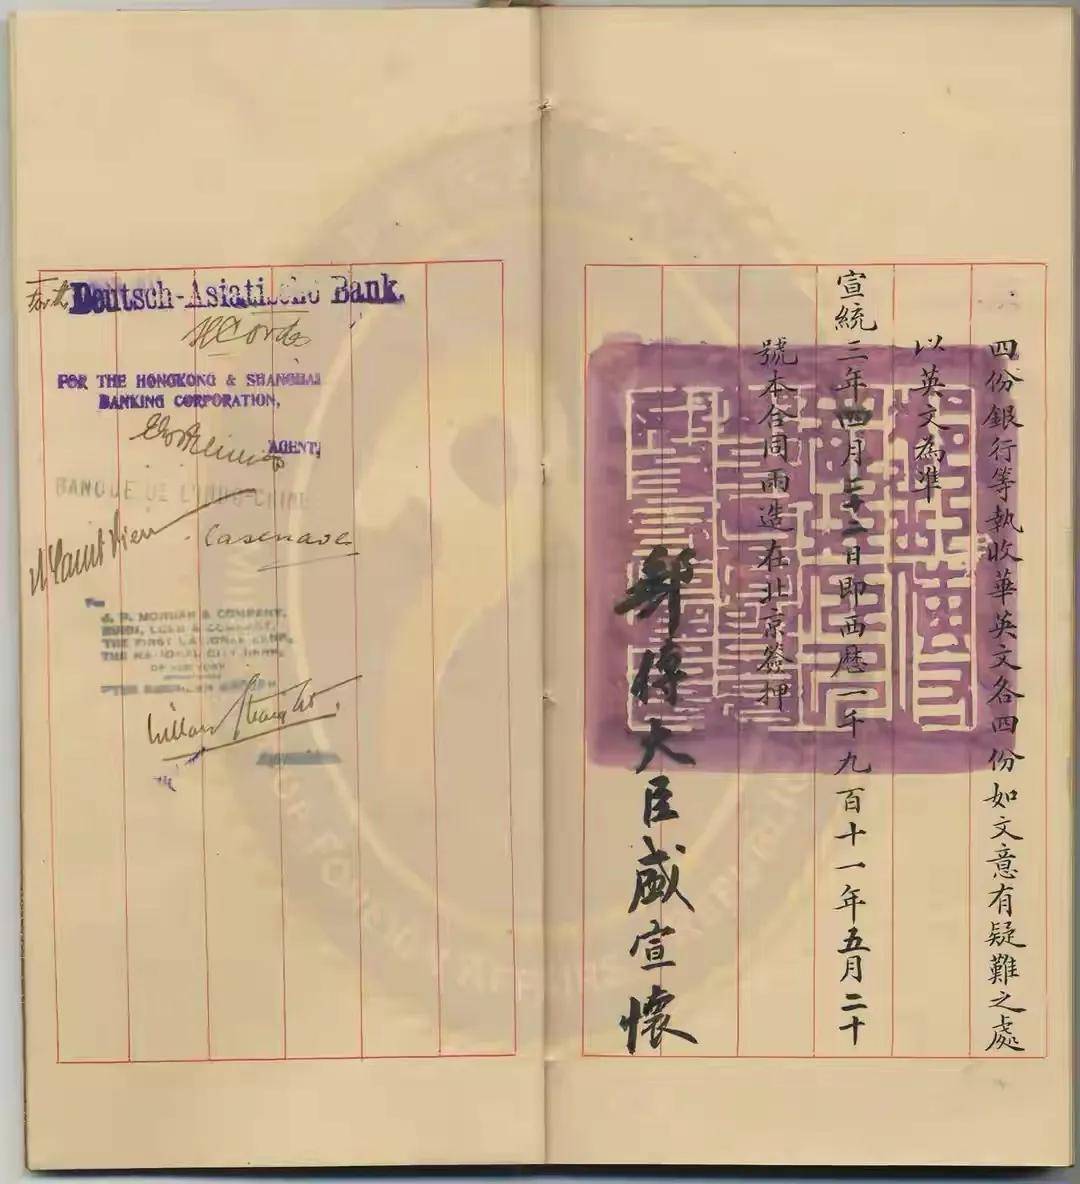 四份銀行等執收華英文各四份如文意有疑難之處
以英文為準
宣統三年四月二十二日即西歷一千九百十一年五月二十
號本合同兩造在北京簽押
郵傳大臣盛宣懷
For the Deutsch-Asiatische Bank.
H Cordes
FOR THE HONGKONG & SHANGHAI
BANKING CORPORATION,
AGENT,
BANQUE DE L'INDO-CHINE
Casenave
For
J. P. MORGAN & COMPANY,
KUHN, LOEB & COMPANY,
THE FIRST NATIONAL BANK,
THE NATIONAL CITY BANK,
OF NEW YORK
Willard Straight
OF FOREIGN AFFAIRS